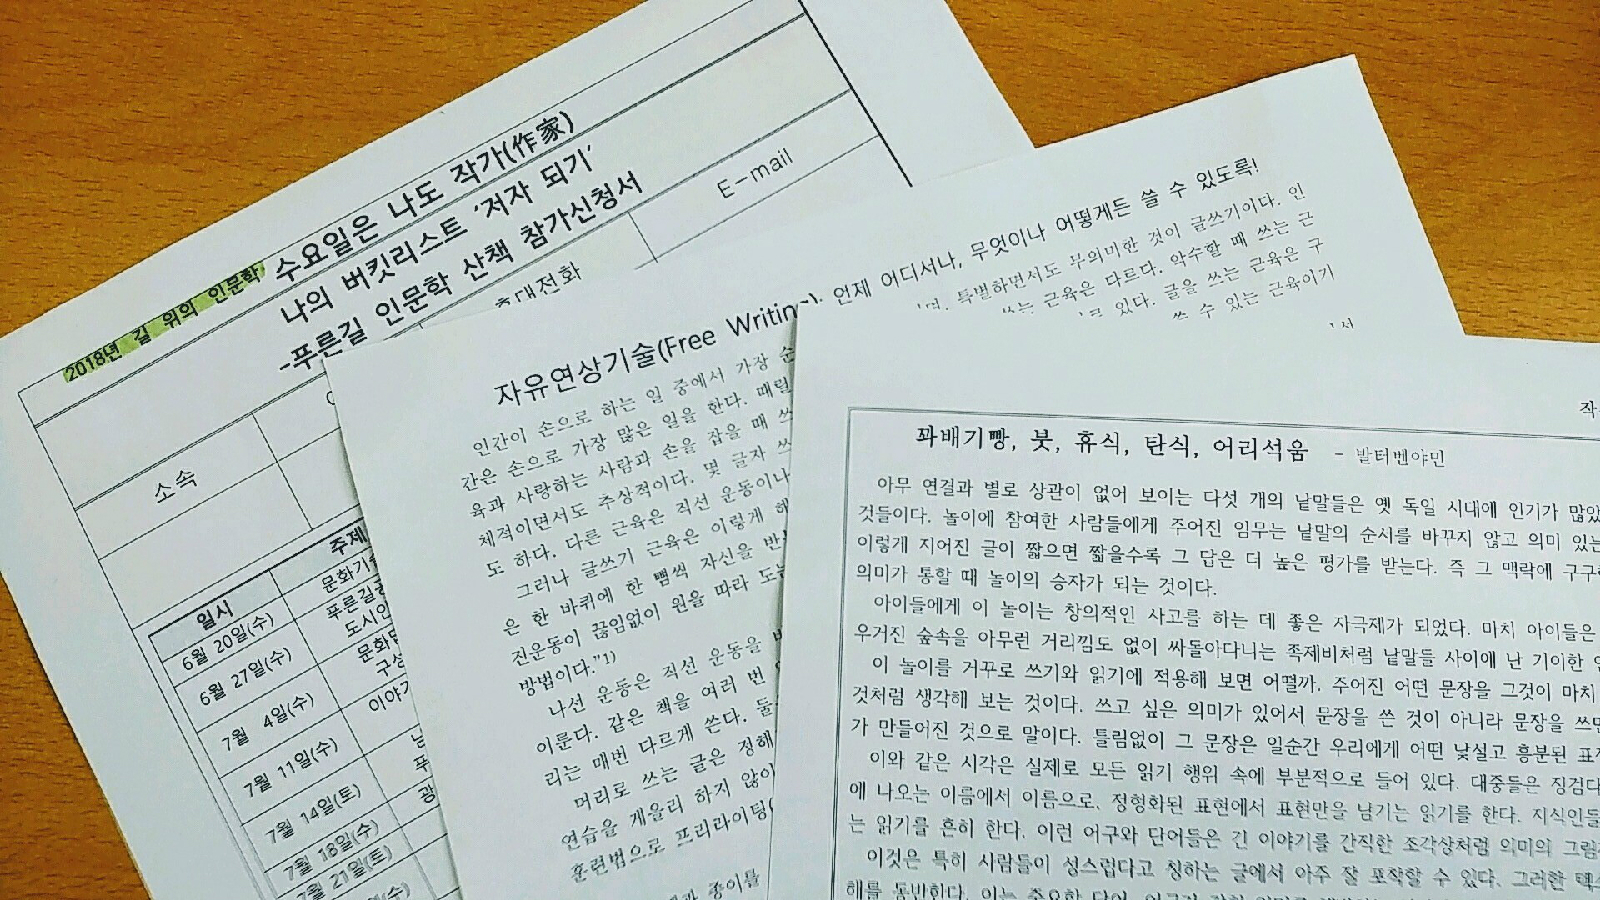 2018년 길 위의 인문학
수요일은 나도 작가(作家)
나의 버킷리스트 '저자 되기'
-푸른길 인문학 산책 참가신청서
E-mail
휴대전화
소속
일시
주제
6월 20일(수)
6월 27일(수)
7월 4일(수)
7월 11일(수)
7월 14일(토)
7월 18일(수)
7월 21일(토)
문화기
푸른길
도시인
문화
구성
이야기
자유연상기술(Free Writing): 언제 어디서나, 무엇이나 어떻게든 쓸 수 있도록!
인간이 손으로 하는 일 중에서 가장
특별하면서도 무의미한 것이 글쓰기이다. 인
간은 손으로 가장 많은 일을 한다. 때릴
쓰는 근육은 다르다. 악수할 때 쓰는 근
육과 사랑하는 사람과 손을 잡을 때
있다. 글을 쓰는 근육은 구
체적이면서도 추상적이다. 몇 글자
쓸 수 있는 근육이기
도 하다. 다른 근육은 직선 운동이나
그러나 글쓰기 근육은 이렇게
은 한 바퀴에 한 뼘씩 자신을
전운동이 끊임없이 원을 따라 도는
방법이다."1)
나선 운동은 직선 운동을
이룬다. 같은 책을 여러 번
리는 매번 다르게 쓴다.
머리로 쓰는 글은 정해
연습을 게을리 하지 않아
훈련법으로 프리라이팅
종이를
꽈배기빵, 붓, 휴식, 탄식, 어리석음 - 발터벤야민
아무 연결과 별로 상관이 없어 보이는 다섯 개의 낱말들은 옛 독일 시대에 인기가 많았
것들이다. 놀이에 참여한 사람들에게 주어진 임무는 낱말의 순서를 바꾸지 않고 의미 있는
이렇게 지어진 글이 짧으면 짧을수록 그 답은 더 높은 평가를 받는다. 즉 그 맥락에
의미가 통할 때 놀이의 승자가 되는 것이다.
아이들에게 이 놀이는 창의적인 사고를 하는 데 좋은 자극제가 되었다. 마치 아이들은
우거진 숲속을 아무런 거리낌도 없이 싸돌아다니는 족제비처럼 낱말들 사이에 난 기이한
이 놀이를 거꾸로 쓰기와 읽기에 적용해 보면 어떨까. 주어진 어떤 문장을 그것이 마치
것처럼 생각해 보는 것이다. 쓰고 싶은 의미가 있어서 문장을 쓴 것이 아니라 문장을 쓰면
가 만들어진 것으로 말이다. 틀림없이 그 문장은 일순간 우리에게 어떤 낯설고 흥분된
이와 같은 시각은 실제로 모든 읽기 행위 속에 부분적으로 들어 있다. 대중들은
에 나오는 이름에서 이름으로, 정형화된 표현에서 표현만을 남기는 읽기를 한다. 지식인들
는 읽기를 흔히 한다. 이런 어구와 단어들은 긴 이야기를 간직한 조각상처럼 의미의
이것은 특히 사람들이 성스럽다고 칭하는 글에서 아주 잘 포착할 수 있다. 그러한
해를 동반한다. 이는 중요한 단어,